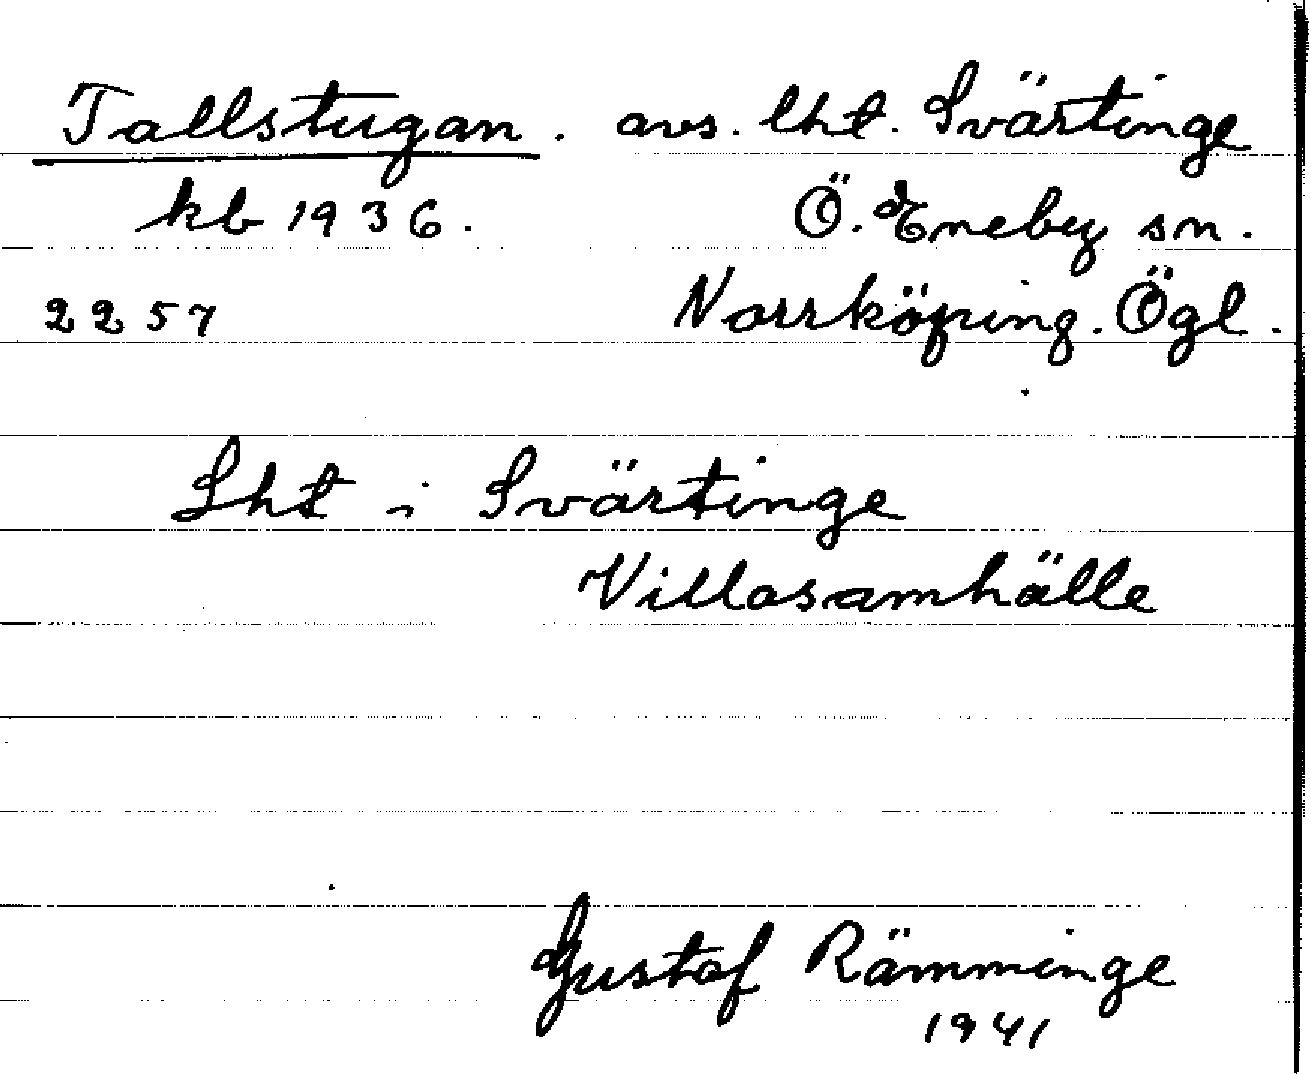 Tallstugan. avs. lht. Svärtinge
kb 1936. Ö. Eneby sn.
2257 Norrköping. Ögl.
Lht i Svärtinge
Villasamhälle
Gustaf Rämminge
1941